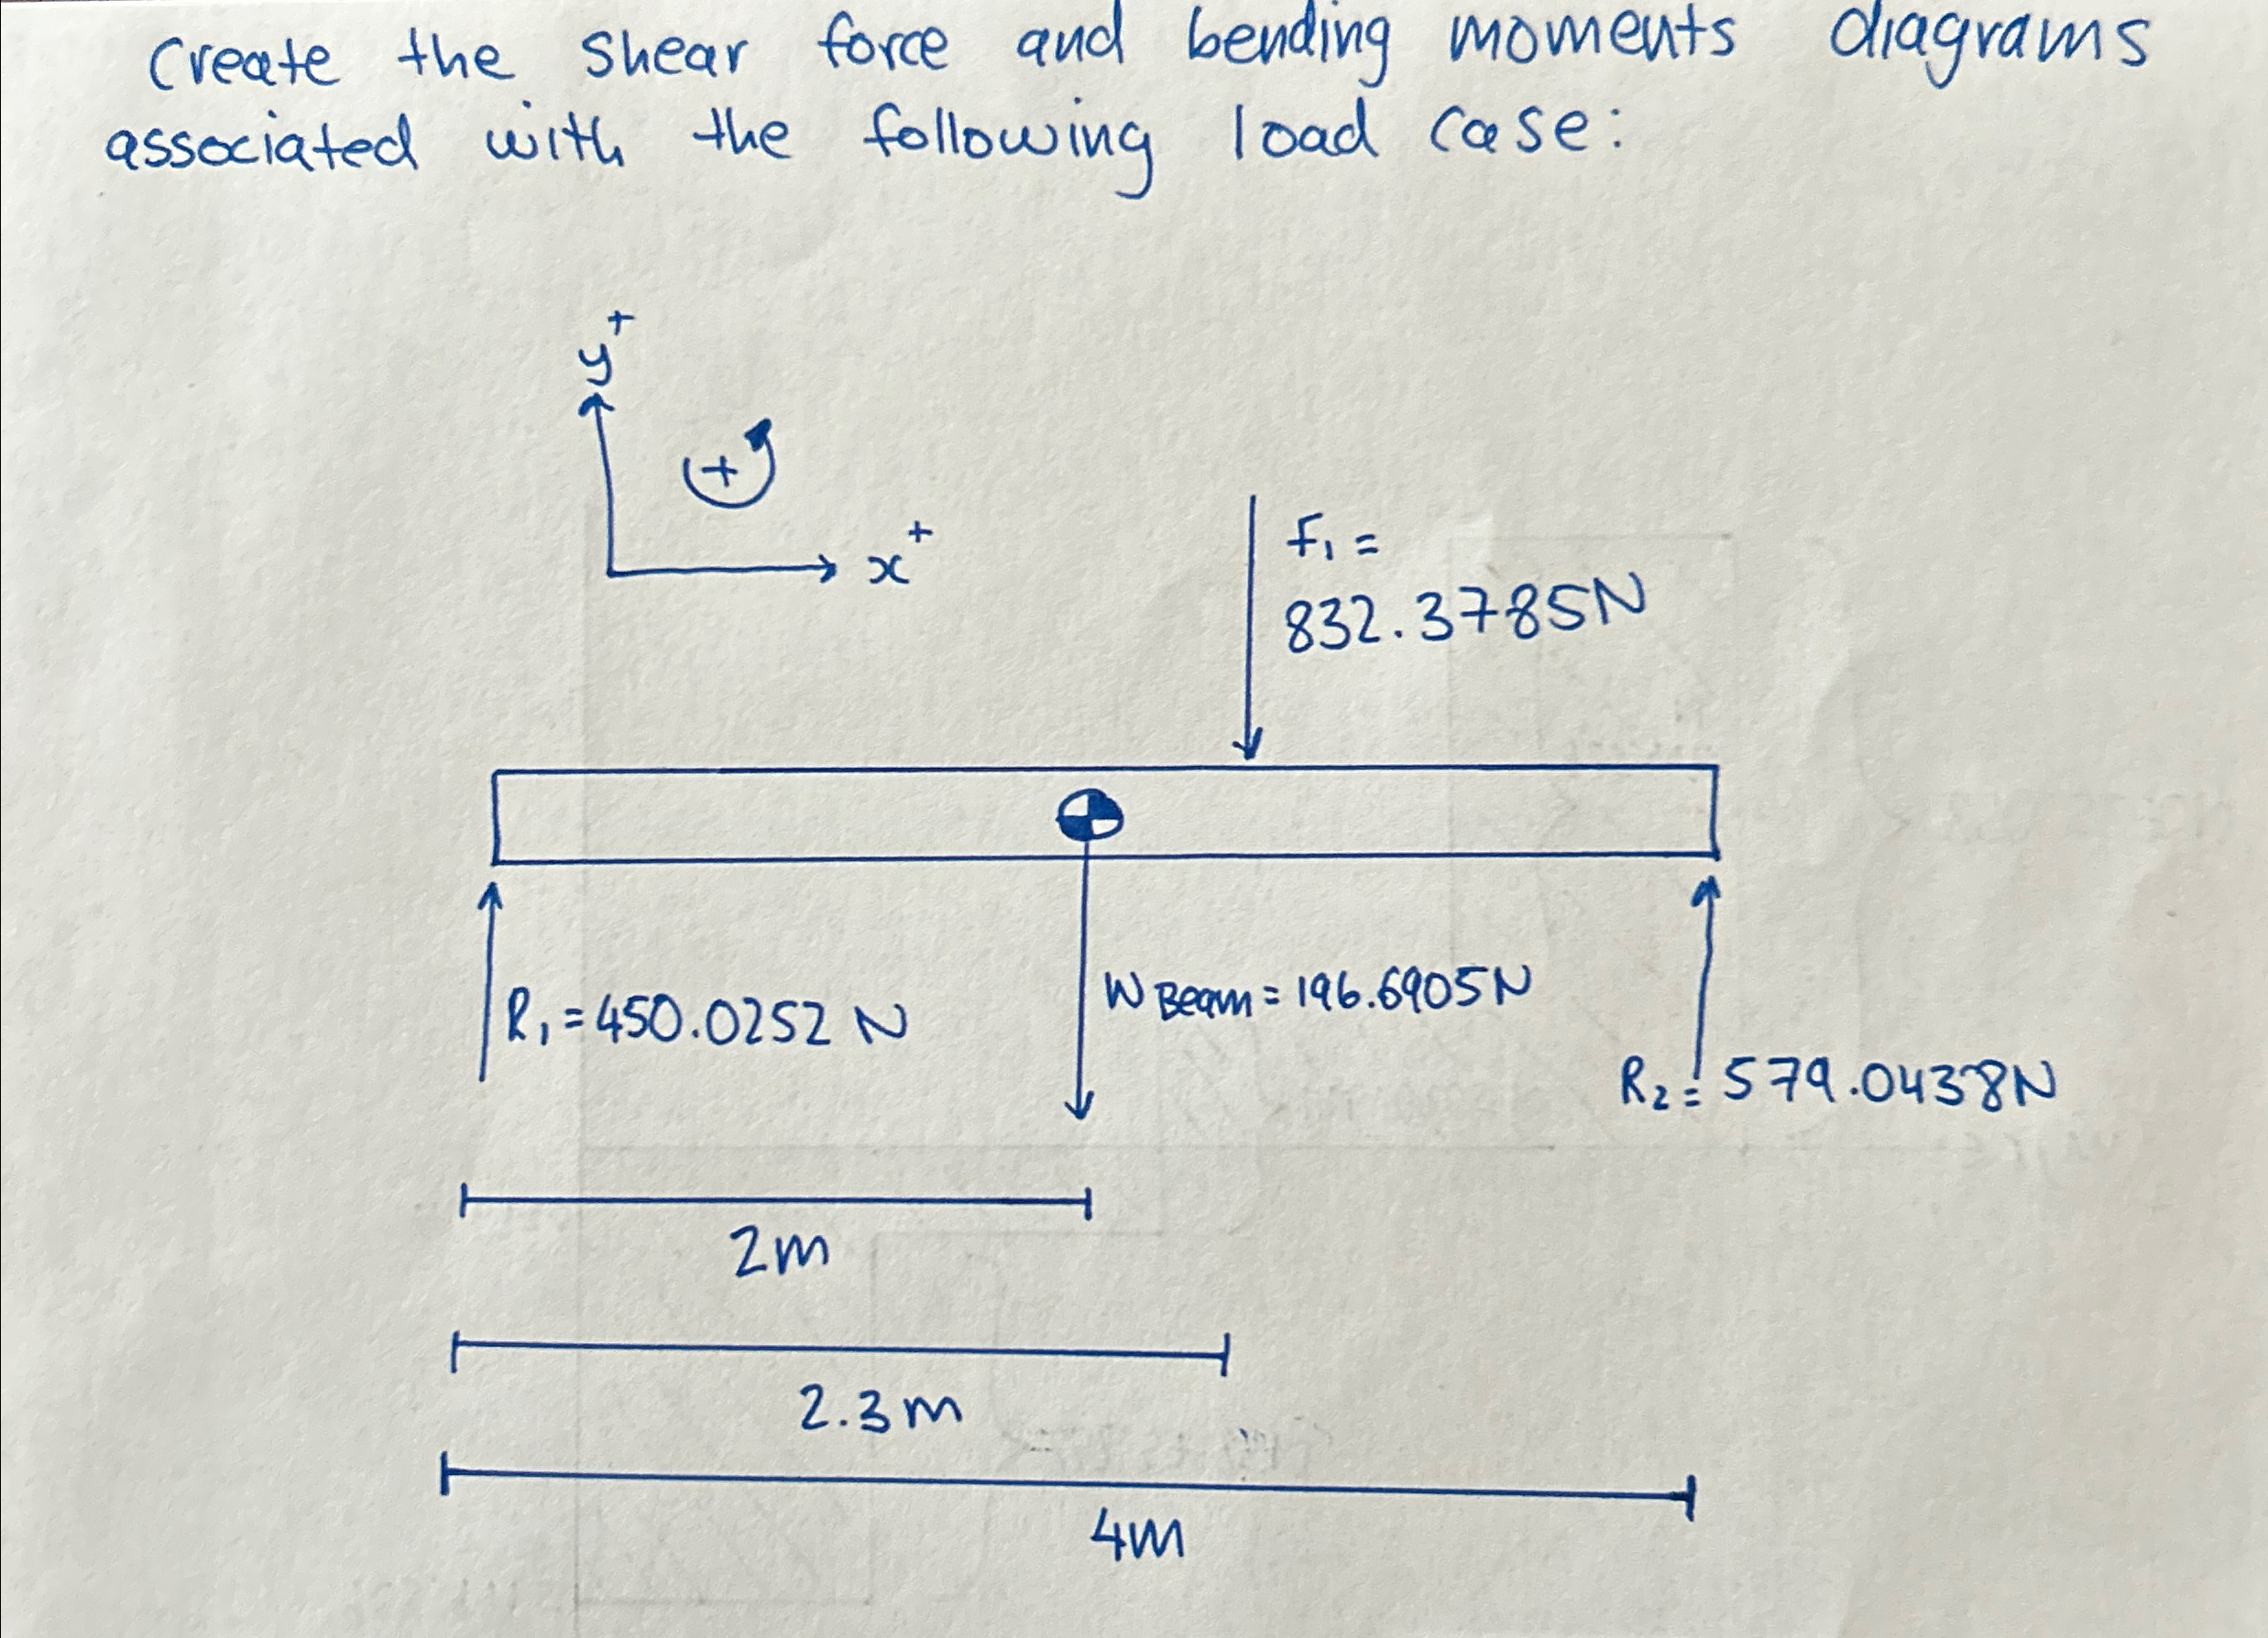 Create the shear force and bending moments diagrams
associated with the following load case:
y+
+
x+
F1 =
832.3785N
R1 = 450.0252 N
W Beam = 196.6905N
R2 = 579.0438N
2m
2.3m
4m